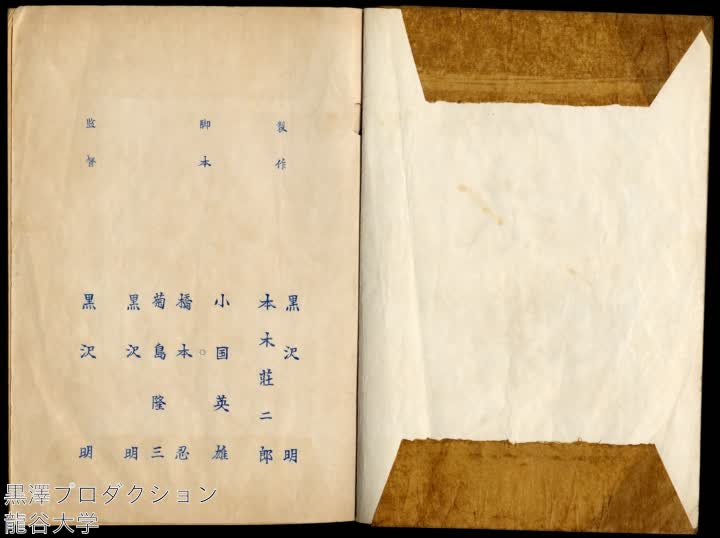 製作
黒沢明
本木莊二郎
脚本
小国英雄
橋本忍
菊島隆三
黒沢明
監督
黒沢明
黒澤プロダクション
龍谷大学